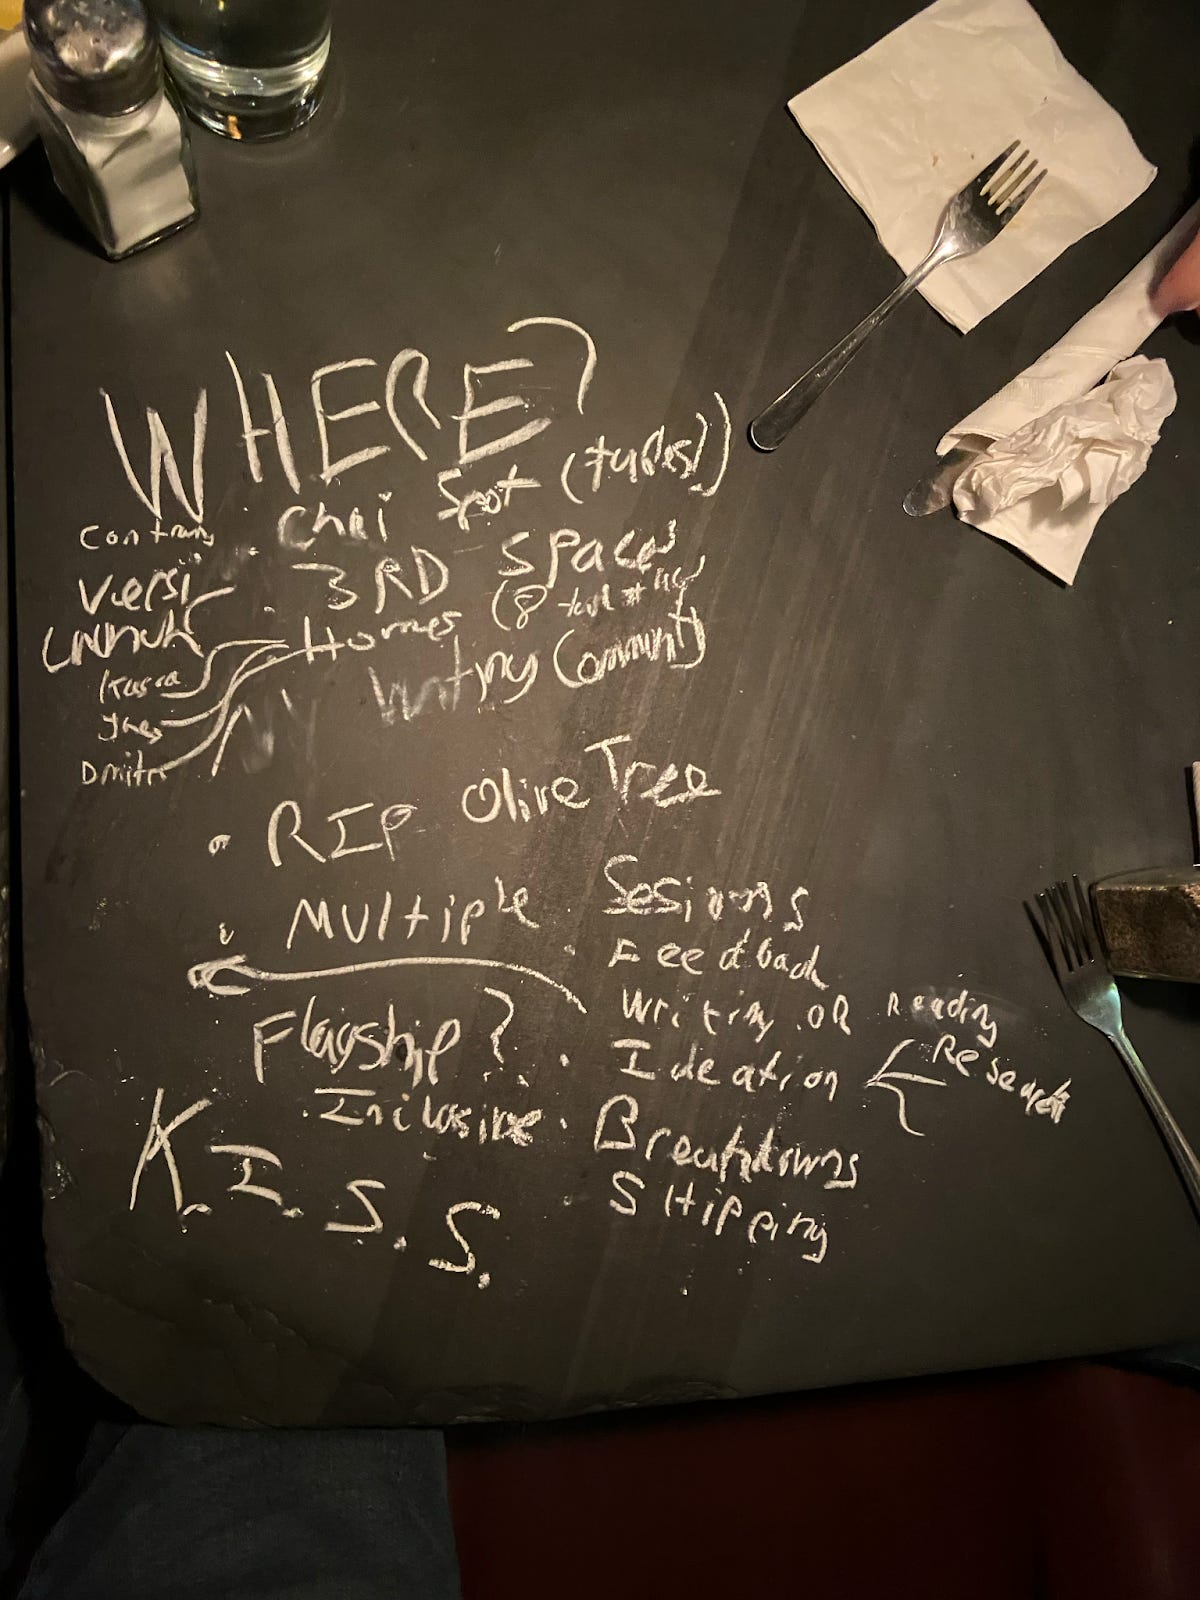 WHERE?
Chai Spot (tables?)
Contrary
3RD Spaces
Versi
Homes (8
Unnch
Writing Community
Kasra
Ynes
Dmitri
RIP Olive Tree
Multiple
Flagship?
Inclusive
K.I.S.S.
Sesions
Feedback
Writing OR Reading
Ideation
Research
Breakdowns
SHipping